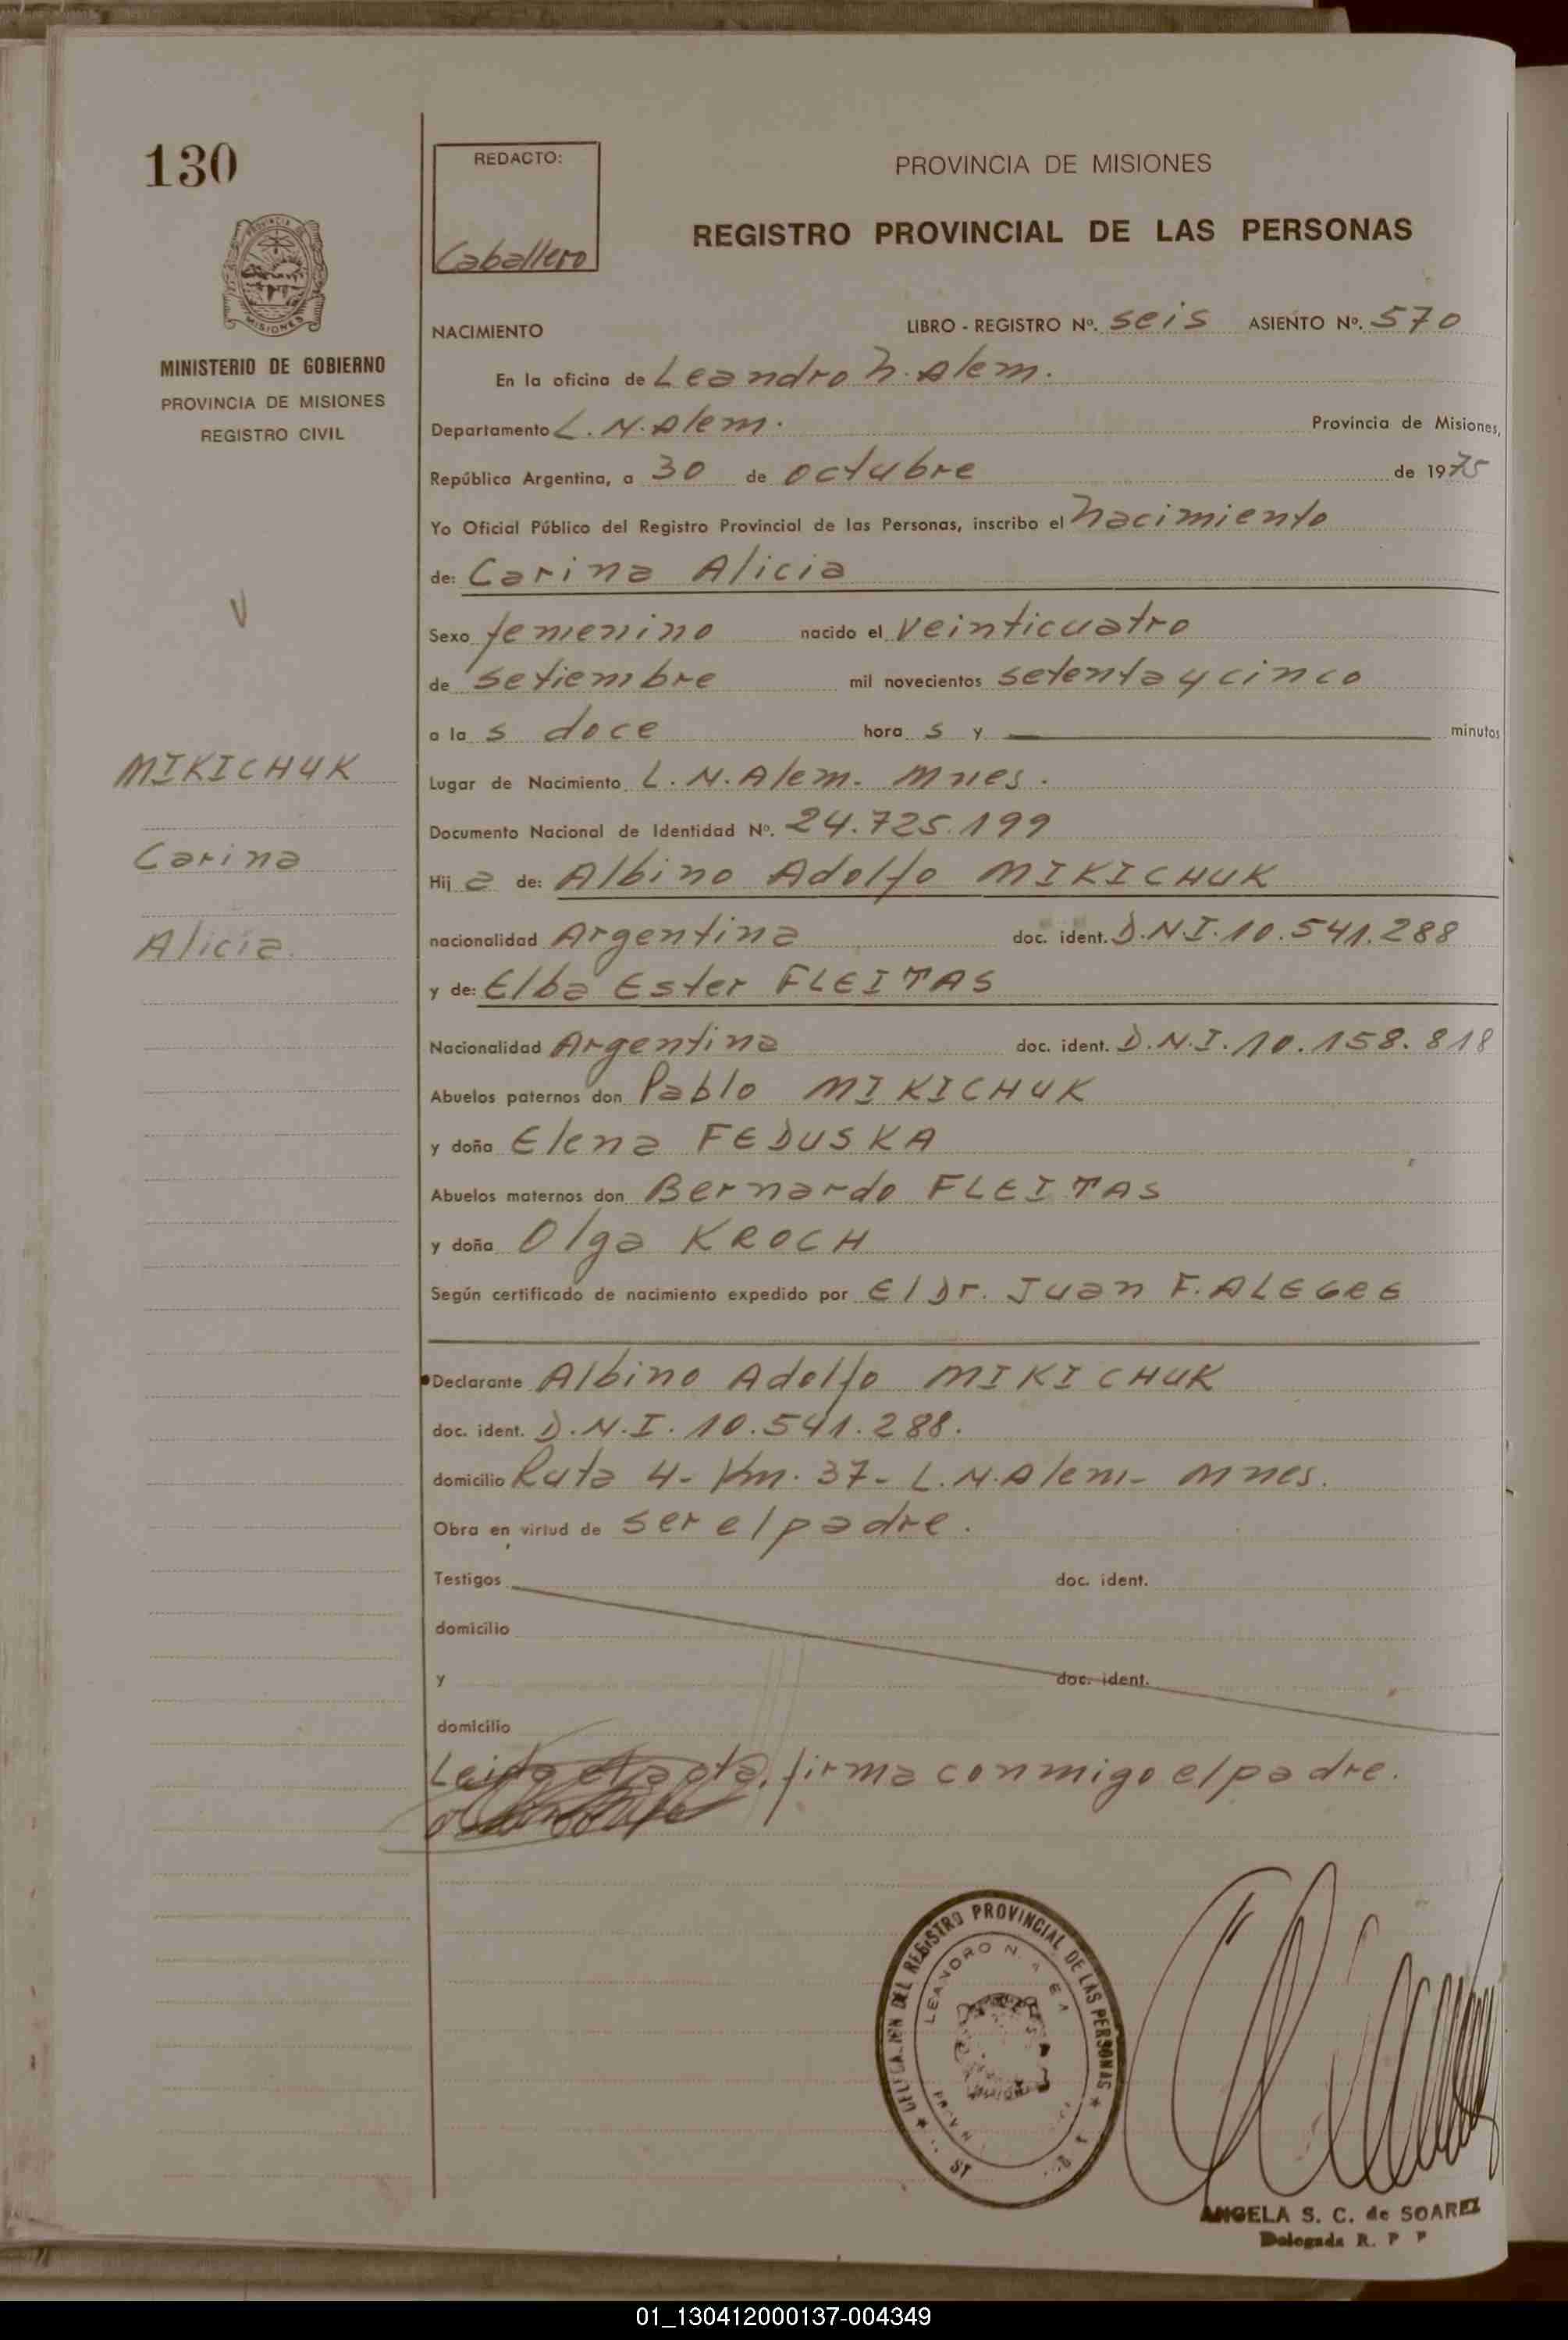 130
REDACTO:
Caballero
PROVINCIA DE MISIONES
REGISTRO PROVINCIAL DE LAS PERSONAS
MISIONES
MINISTERIO DE GOBIERNO
PROVINCIA DE MISIONES
REGISTRO CIVIL
NACIMIENTO
LIBRO - REGISTRO Nº. seis ASIENTO Nº. 570
En la oficina de Leandro N. Alem.
Departamento L. N. Alem. Provincia de Misiones,
República Argentina, a 30 de octubre de 1975
Yo Oficial Público del Registro Provincial de las Personas, inscribo el nacimiento
de: Carina Alicia
Sexo femenino nacido el veinticuatro
de setiembre mil novecientos setenta y cinco
a la s doce hora s y minutos
MIKICHUK
Carina
Alicia.
Lugar de Nacimiento L. N. Alem. Mnes.
Documento Nacional de Identidad Nº. 24.725.199
Hij a de: Albino Adolfo MIKICHUK
nacionalidad Argentina doc. ident. D.N.I. 10.541.288
y de: Elba Ester FLEITAS
Nacionalidad Argentina doc. ident. D.N.I. 10.158.818
Abuelos paternos don Pablo MIKICHUK
y doña Elena FEDUSKA
Abuelos maternos don Bernardo FLEITAS
y doña Olga KROCH
Según certificado de nacimiento expedido por El Dr. Juan F. ALEGRE
Declarante Albino Adolfo MIKICHUK
doc. ident. D.N.I. 10.541.288.
domicilio Ruta 4- Km. 37- L.N. Alem- Mnes.
Obra en virtud de ser el padre.
Testigos doc. ident.
domicilio
y doc. ident.
domicilio
Leida el acta, firma conmigo el padre.
DELEGACION DEL REGISTRO PROVINCIAL DE LAS PERSONAS
LEANDRO N.
ANGELA S. C. de SOAREZ
Delegada R. P P
01_130412000137-004349